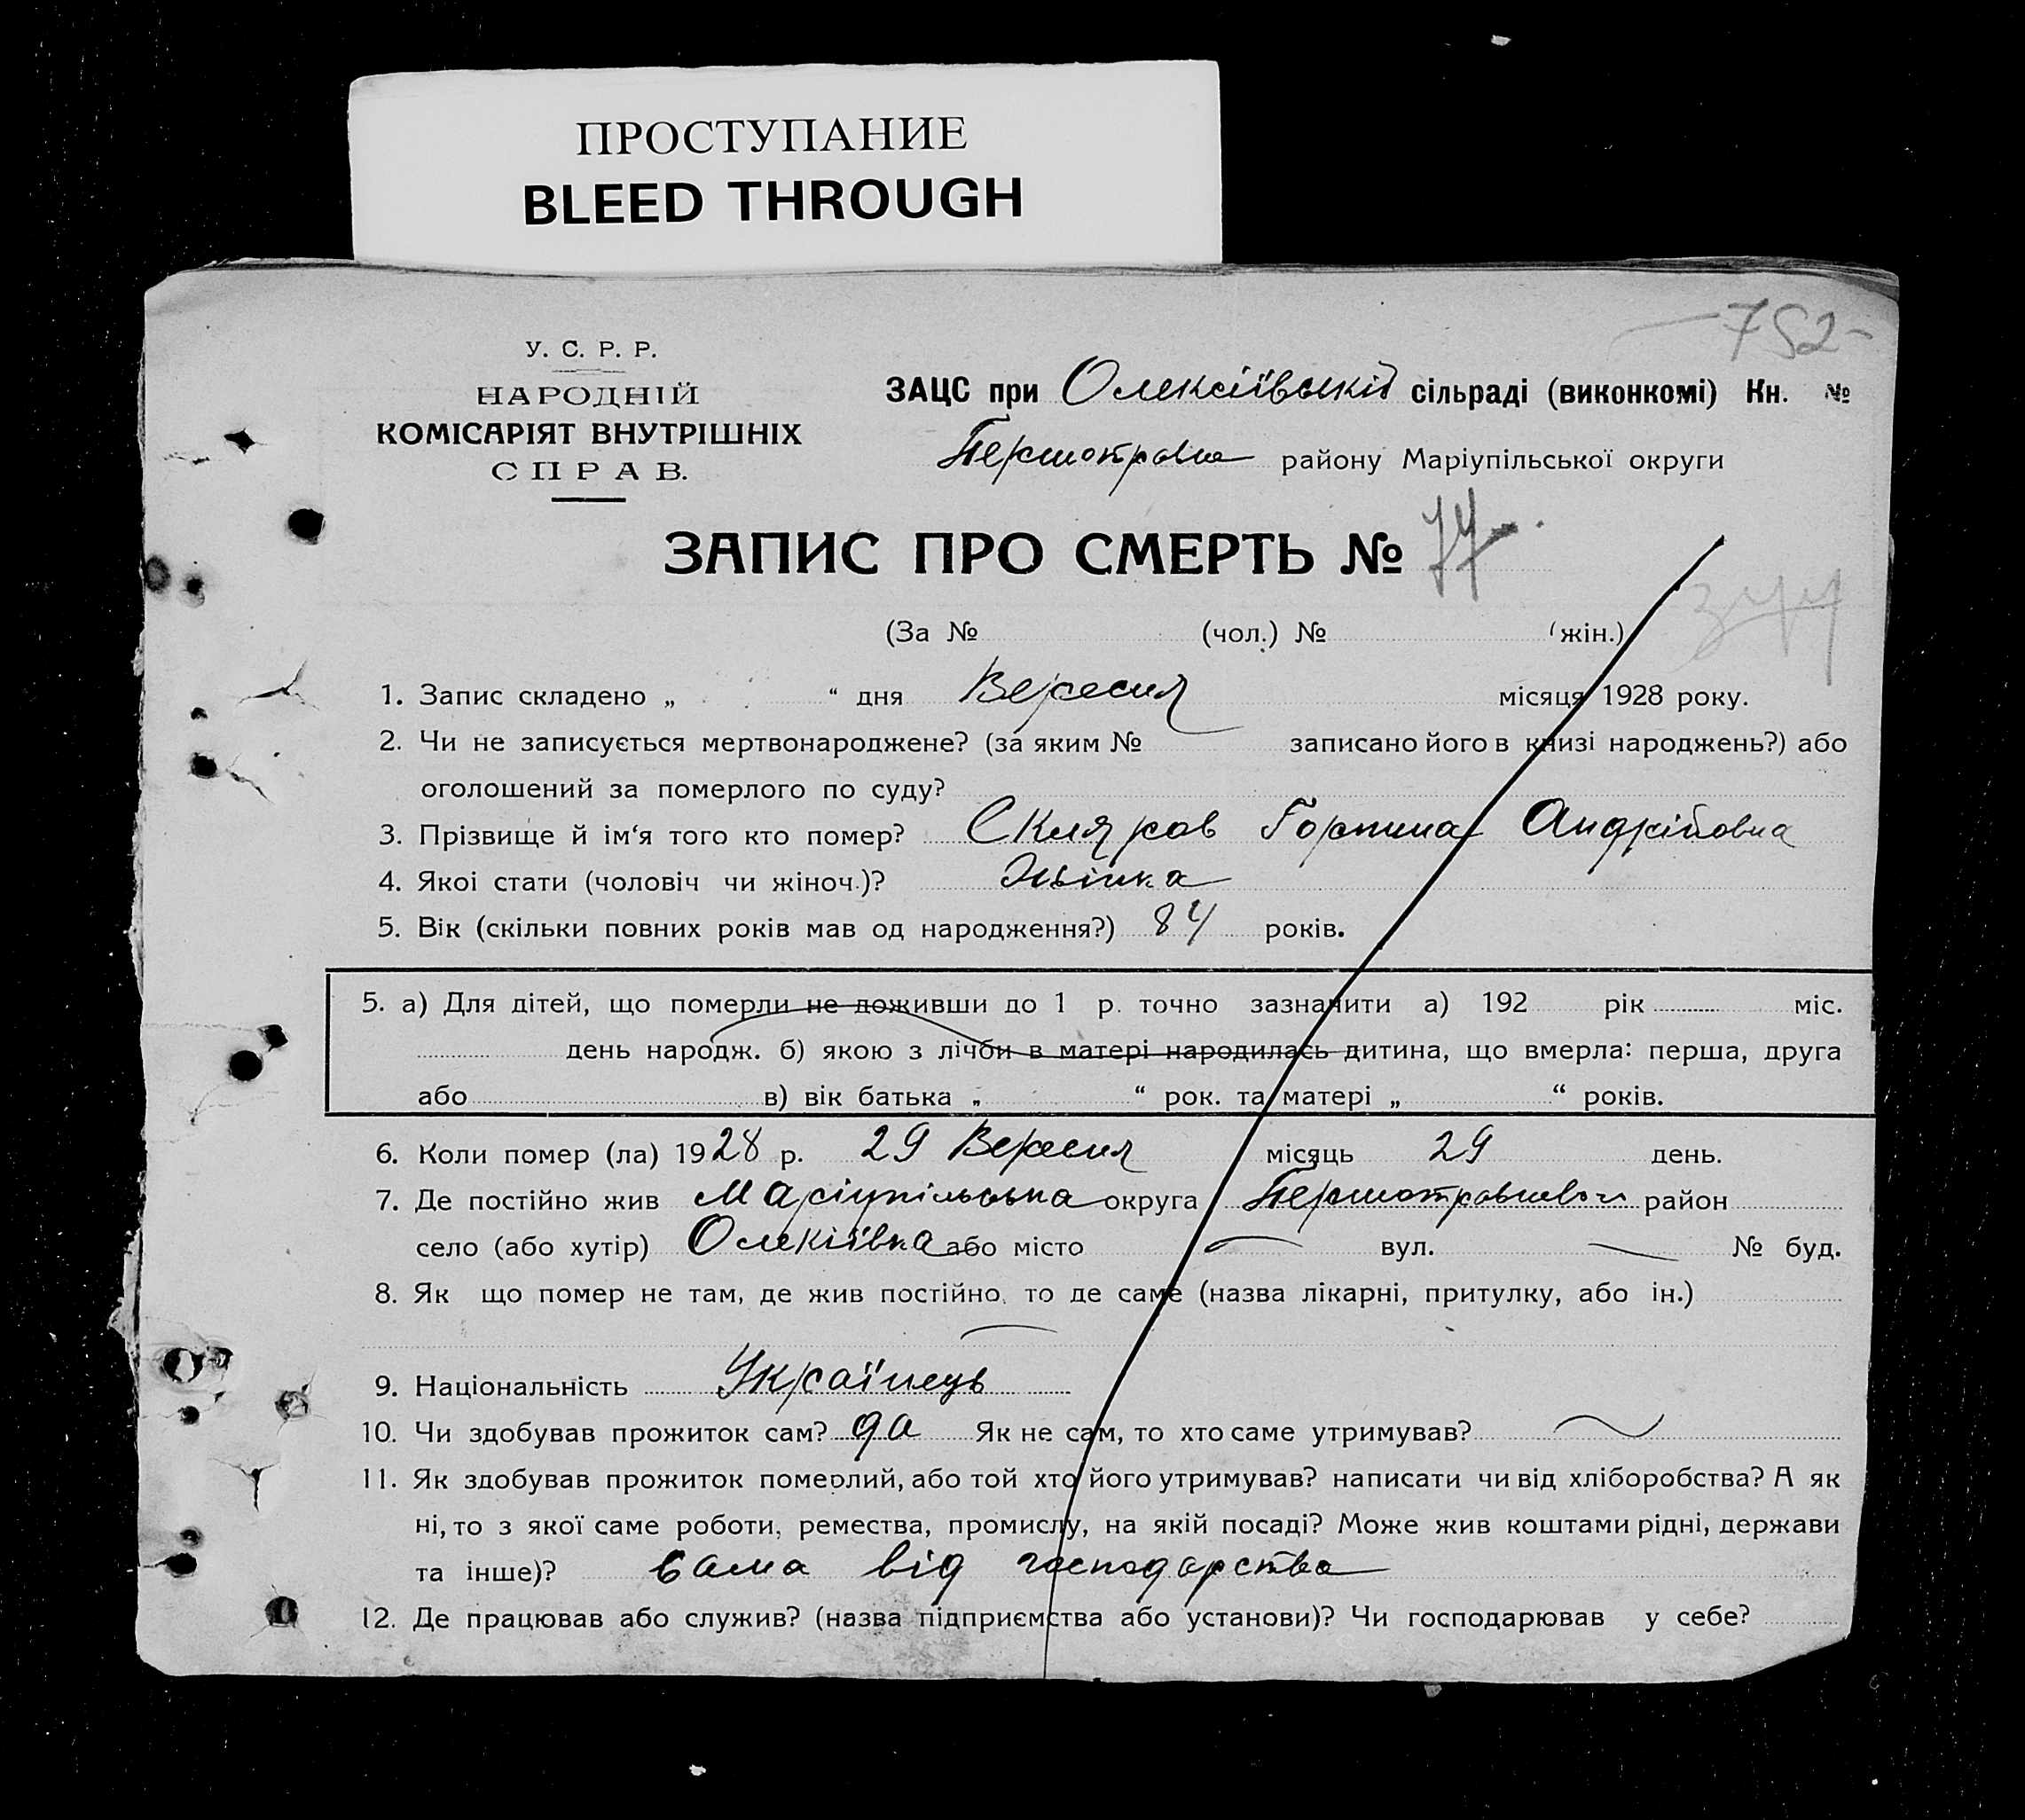 ПРОСТУПАНИЕ
BLEED THROUGH
752-
У. С. Р. Р.
НАРОДНІЙ
КОМІСАРІЯТ ВНУТРІШНІХ
СПРАВ.
ЗАЦС при Олексіївській сільраді (виконкомі) Кн. №
Першотравн району Маріупільської округи
ЗАПИС ПРО СМЕРТЬ №
(За № (чол.) № (жін.)
1. Запис складено „ “ дня Вересня місяця 1928 року.
2. Чи не записується мертвонароджене? (за яким № записано його в книзі народжень?) або
оголошений за померлого по суду?
3. Прізвище й ім‘я того кто помер? Скляров Горпина Андрійовна
4. Якоі стати (чоловіч чи жіноч.)? Жінка
5. Вік (скільки повних років мав од народження?) 84 років.
5. а) Для дітей, що померли не доживши до 1 р. точно зазначити а) 192 рік міс.
день народж. б) якою з лічби в матері народилась дитина, що вмерла: перша, друга
або в) вік батька „ “ рок. та матері „ “ років.
6. Коли помер (ла) 1928 р. 29 Вересня місяць 29 день.
7. Де постійно жив Маріупільська округа Першотравневий район
село (або хутір) Олекіївка або місто вул. № буд.
8. Як що помер не там, де жив постійно, то де саме (назва лікарні, притулку, або ін.)
9. Національність Українець
10. Чи здобував прожиток сам? да Як не сам, то хто саме утримував?
11. Як здобував прожиток померлий, або той хто його утримував? написати чи від хліборобства? А як
ні, то з якої саме роботи, ремества, промислу, на якій посаді? Може жив коштами рідні, держави
та інше)? Сама від господарства
12. Де працював або служив? (назва підприємства або установи)? Чи господарював у себе?